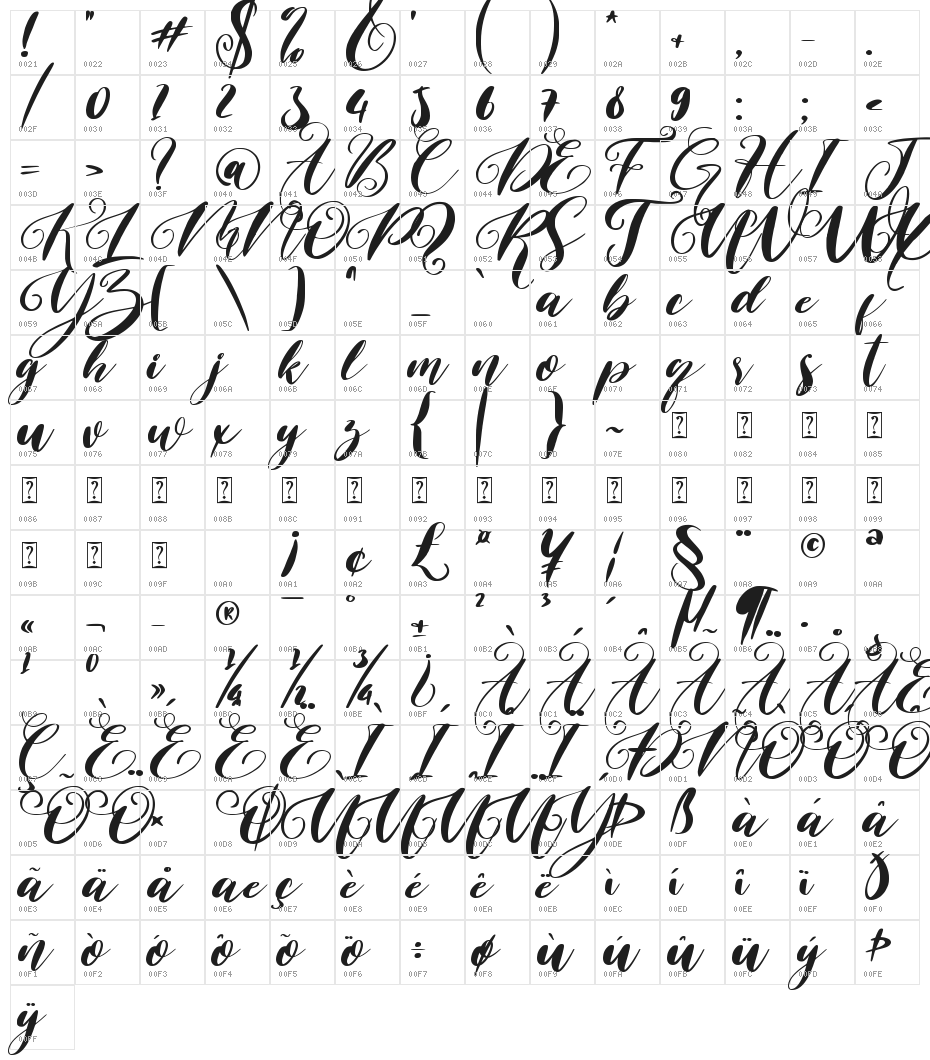 ! " # $ % & ' ( ) * + , - .
0021 0022 0023 0024 0025 0026 0027 0028 0029 002A 002B 002C 002D 002E
/ 0 1 2 3 4 5 6 7 8 9 : ; <
002F 0030 0031 0032 0033 0034 0035 0036 0037 0038 0039 003A 003B 003C
= > ? @ A B C D E F G H I J
003D 003E 003F 0040 0041 0042 0043 0044 0045 0046 0047 0048 0049 004A
K L M N O P Q R S T U V W X
004B 004C 004D 004E 004F 0050 0051 0052 0053 0054 0055 0056 0057 0058
Y Z [ \ ] ^ _ ` a b c d e f
0059 005A 005B 005C 005D 005E 005F 0060 0061 0062 0063 0064 0065 0066
g h i j k l m n o p q r s t
0067 0068 0069 006A 006B 006C 006D 006E 006F 0070 0071 0072 0073 0074
u v w x y z { | } ~ ? ? ? ?
0075 0076 0077 0078 0079 007A 007B 007C 007D 007E 0080 0082 0084 0085
? ? ? ? ? ? ? ? ? ? ? ? ? ?
0086 0087 0088 008B 008C 0091 0092 0093 0094 0095 0096 0097 0098 0099
? ? ? ¡ ¢ £ ¤ ¥ ¦ § ¨ © ª
009B 009C 009F 00A0 00A1 00A2 00A3 00A4 00A5 00A6 00A7 00A8 00A9 00AA
« ¬ - ® ¯ ° ± ² ³ ´ µ ¶ · ¸
00AB 00AC 00AD 00AE 00AF 00B0 00B1 00B2 00B3 00B4 00B5 00B6 00B7 00B8
¹ º » ¼ ½ ¾ ¿ À Á Â Ã Ä Å Æ
00B9 00BA 00BB 00BC 00BD 00BE 00BF 00C0 00C1 00C2 00C3 00C4 00C5 00C6
Ç È É Ê Ë Ì Í Î Ï Ð Ñ Ò Ó Ô
00C7 00C8 00C9 00CA 00CB 00CC 00CD 00CE 00CF 00D0 00D1 00D2 00D3 00D4
Õ Ö × Ø Ù Ú Û Ü Ý Þ ß à á â
00D5 00D6 00D7 00D8 00D9 00DA 00DB 00DC 00DD 00DE 00DF 00E0 00E1 00E2
ã ä å æ ç è é ê ë ì í î ï ð
00E3 00E4 00E5 00E6 00E7 00E8 00E9 00EA 00EB 00EC 00ED 00EE 00EF 00F0
ñ ò ó ô õ ö ÷ ø ù ú û ü ý þ
00F1 00F2 00F3 00F4 00F5 00F6 00F7 00F8 00F9 00FA 00FB 00FC 00FD 00FE
ÿ
00FF